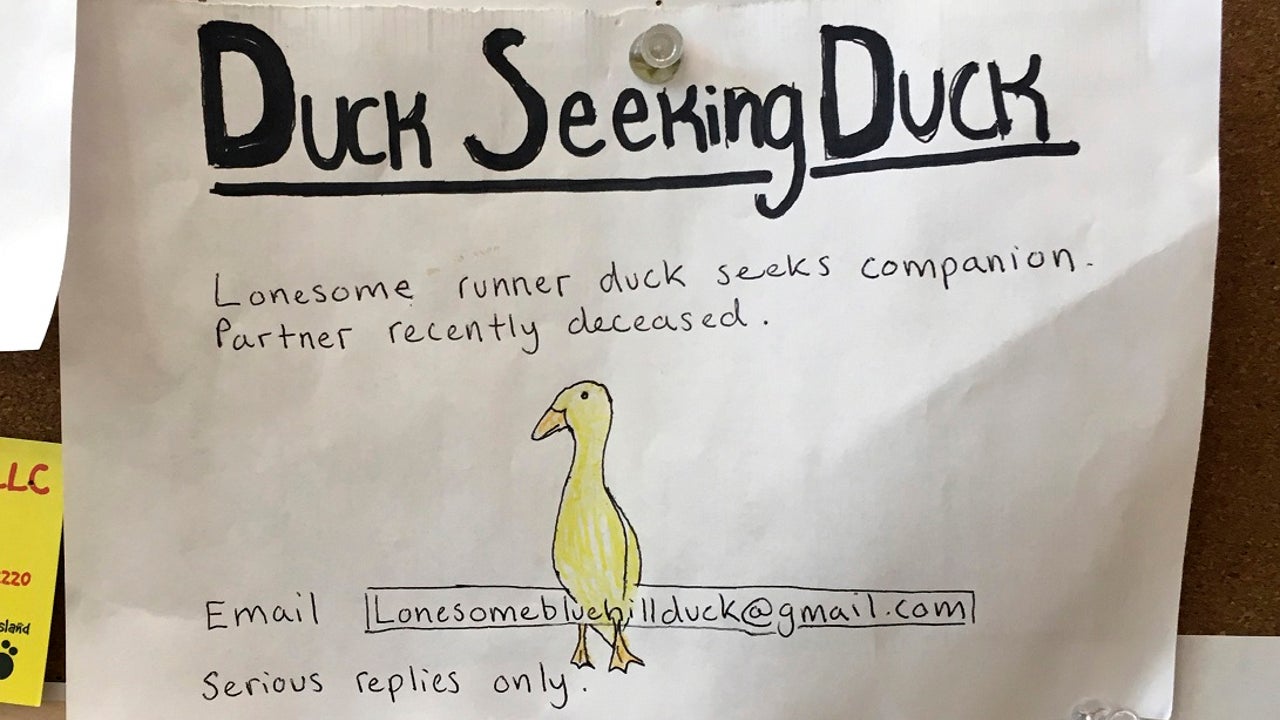 Duck Seeking Duck
Lonesome runner duck seeks companion.
Partner recently deceased.
Email Lonesomebluehillduck@gmail.com
Serious replies only.
LLC
220
sland